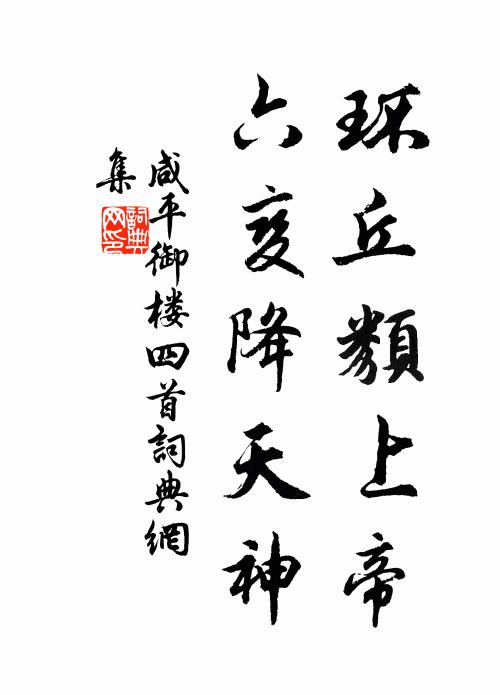 环丘類上帝
六变降天神
咸平御楼四首詞典網
集
詞典网印